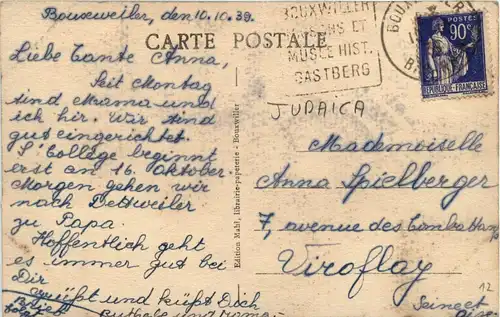 Bouxwiller, den 10.10.39.
Liebe Tante Anna,
Seit Montag
sind Mama und
ich hir. Wir sind
gut eingerichtet.
S'College beginnt
erst an 16. Oktober.
Morgen gehen wir
nach Dettweiler
zu Papa.
Hoffentlich geht
es immer gut bei
Dir
grüßt und küßt Dich
Brief
folgt
CARTE POSTALE
Edition Mahl, librairie-papeterie - Bouxwiller
BOUXWILLER
ET
MUSÉE HIST.
BASTBERG
POSTES
90c
REPUBLIQUE FRANÇAISE
JUDAICA
Mademoiselle
Anna Spielberger
7, avenue des
Viroflay
12
Seine et